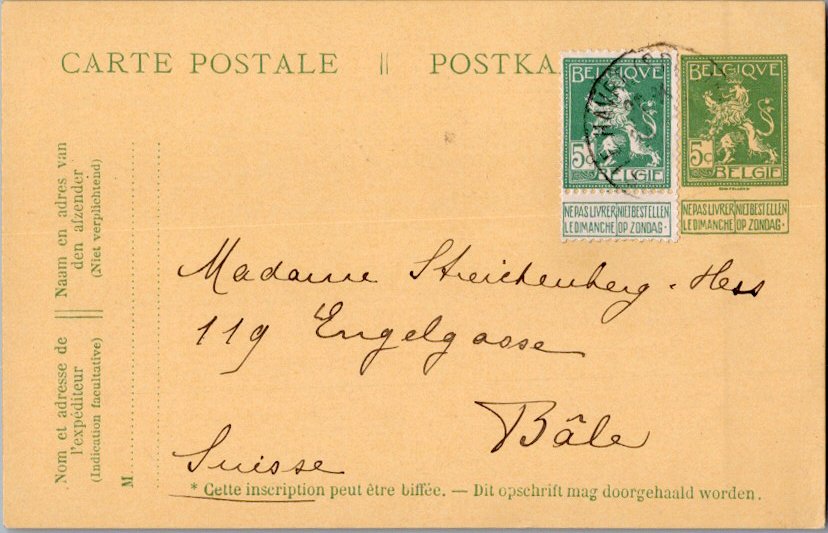 CARTE POSTALE || POSTKA
BELGIQVE
5c
BELGIE
NE PAS LIVRER LE DIMANCHE
NIET BESTELLEN OP ZONDAG.
BELGIQVE
5c
BELGIE
NE PAS LIVRER LE DIMANCHE
NIET BESTELLEN OP ZONDAG.
Naam en adres van
den afzender
(Niet verplichtend)
Nom et adresse de
l'expéditeur
(Indication facultative)
M
Madame Streichenberg-Hess
119 Engelgasse
Bâle
Suisse
* Cette inscription peut être biffée. — Dit opschrift mag doorgehaald worden.